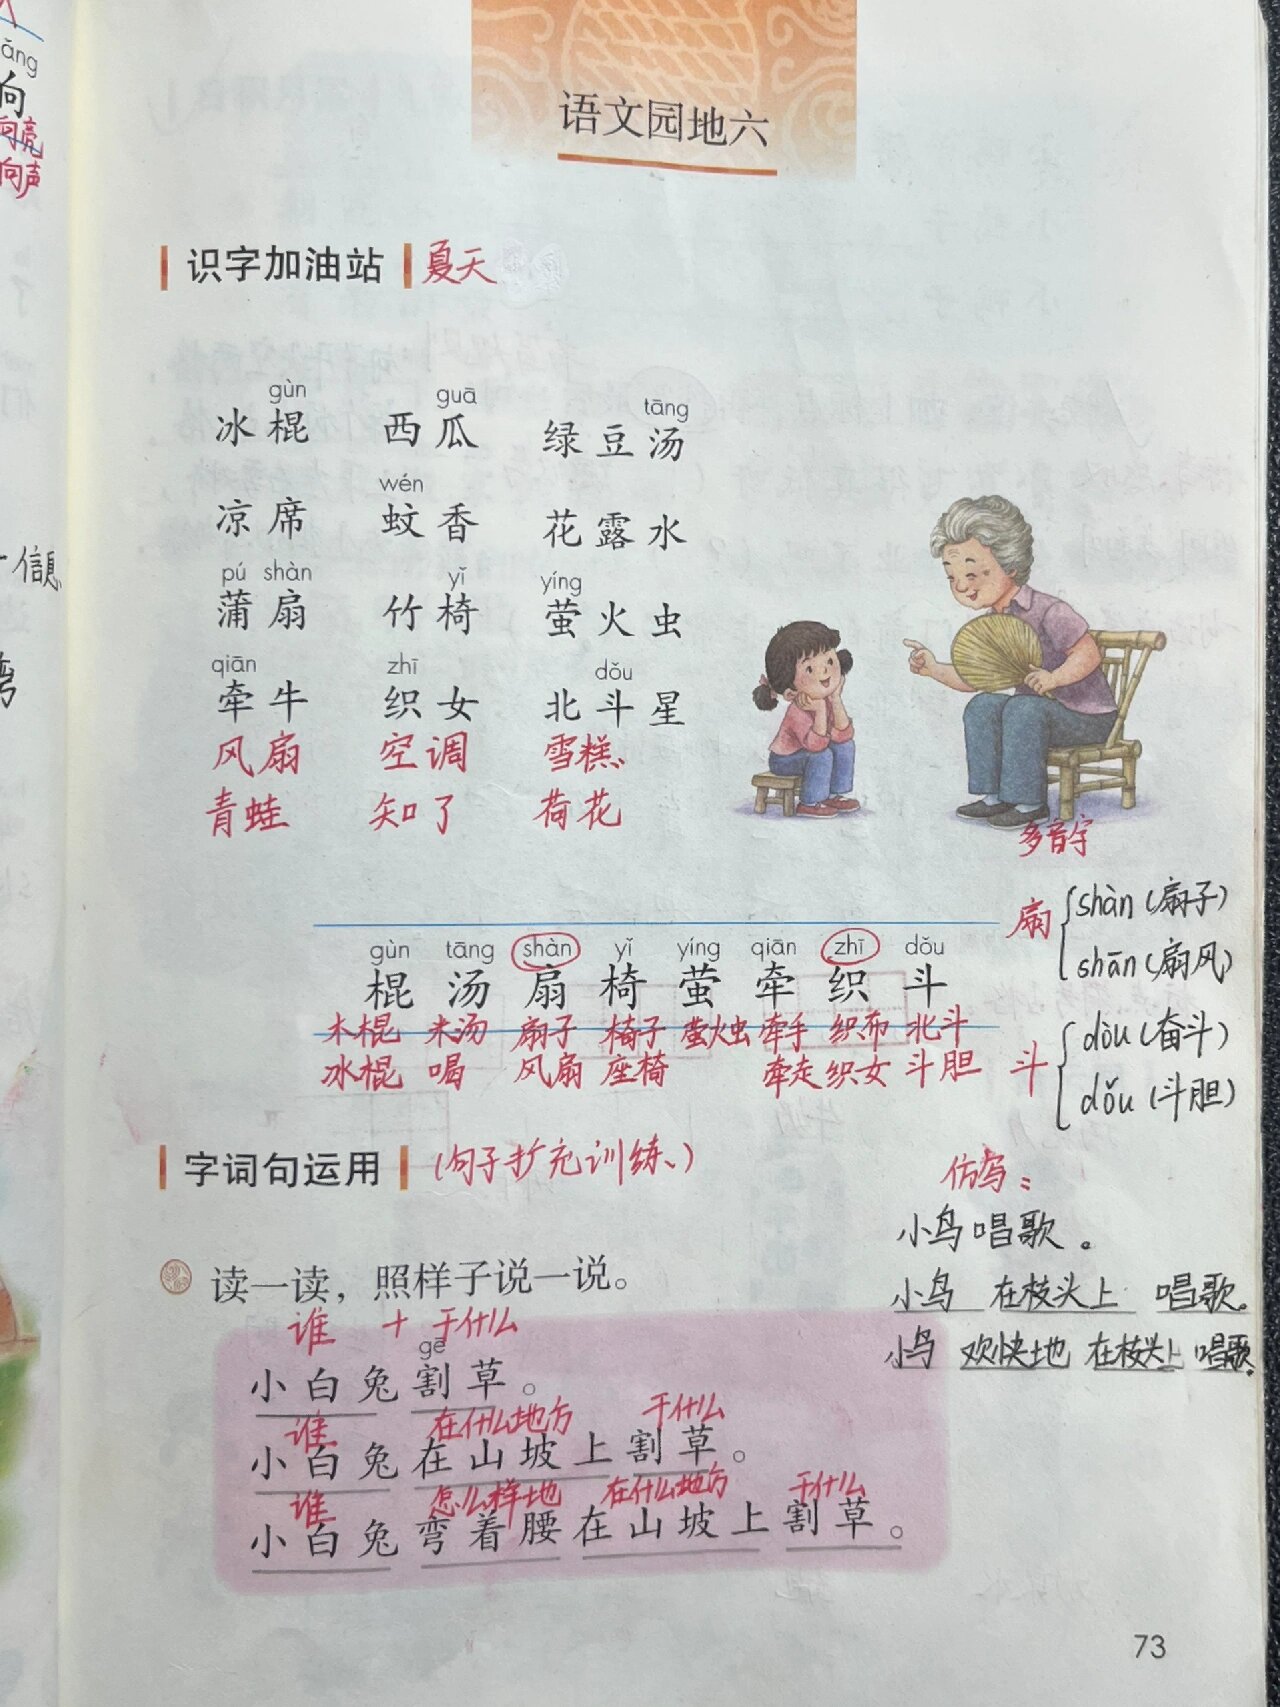 ǎng
向
向亮
向声
信息
弯
语文园地六
识字加油站 夏天
gùn guā tāng
冰棍 西瓜 绿豆汤
wén
凉席 蚊香 花露水
pú shàn yǐ yíng
蒲扇 竹椅 萤火虫
qiān zhī dǒu
牵牛 织女 北斗星
风扇 空调 雪糕、
青蛙 知了 荷花
多音字
扇 shàn(扇子)
shān(扇风)
gùn tāng shàn yǐ yíng qiān zhī dǒu
棍 汤 扇 椅 萤 牵 织 斗
木棍 米汤 扇子 椅子 萤火虫 牵手 织布 北斗
冰棍 喝 风扇 座椅 牵走 织女 斗胆
斗 dòu(奋斗)
dǒu(斗胆)
字词句运用 (句子扩充训练、)
读一读，照样子说一说。
谁 + 干什么
gē
小白兔割草。
谁 在什么地方 干什么
小白兔在山坡上割草。
谁 怎么样地 在什么地方 干什么
小白兔弯着腰在山坡上割草。
仿写：
小鸟唱歌。
小鸟 在枝头上 唱歌。
小鸟 欢快地 在枝头上 唱歌。
73